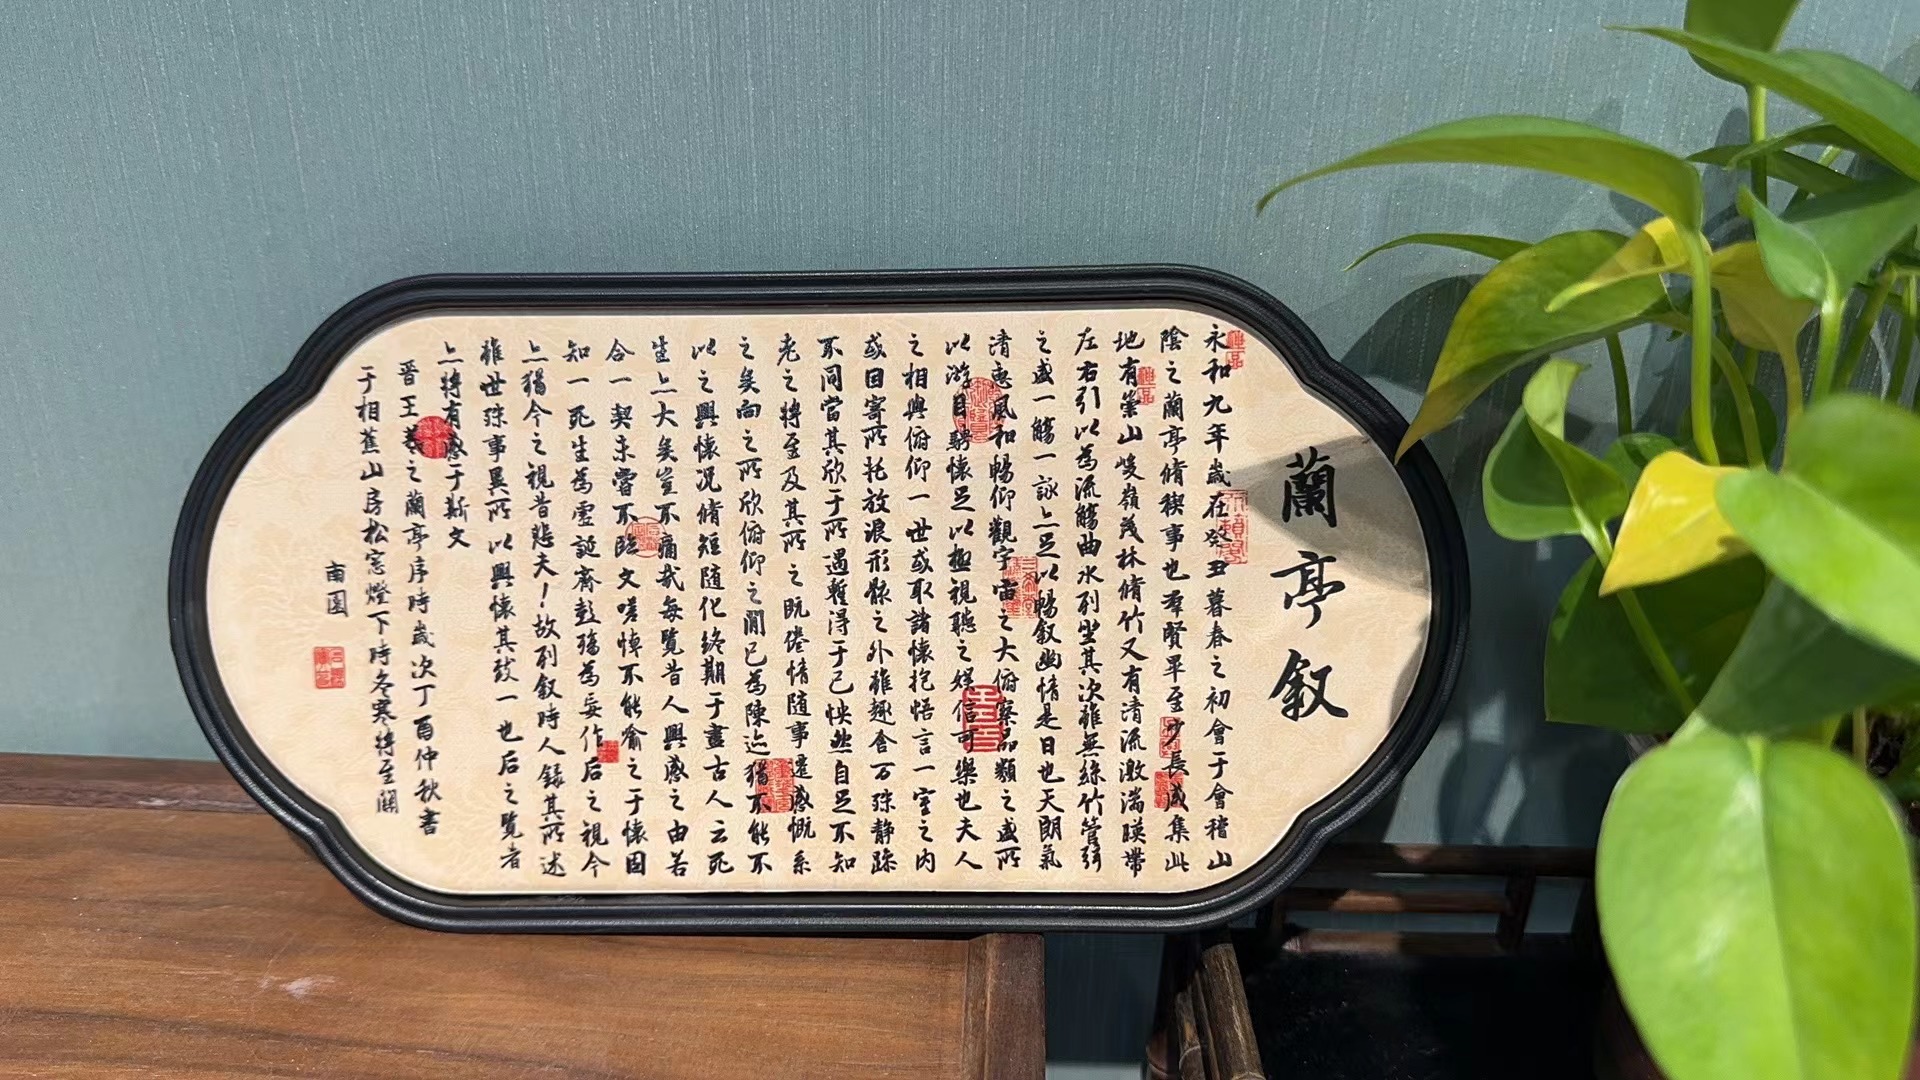 蘭亭叙
永和九年歳在癸丑暮春之初會于會稽山
陰之蘭亭脩稧事也羣賢畢至少長咸集此
地有崇山峻嶺茂林脩竹又有清流激湍暎帶
左右引以為流觴曲水列坐其次雖無絲竹管弦
之盛一觴一詠亦足以暢叙幽情是日也天朗氣
清惠風和暢仰觀宇宙之大俯察品類之盛所
以游目騁懷足以極視聽之娱信可樂也夫人
之相與俯仰一世或取諸懷抱悟言一室之内
或因寄所托放浪形骸之外雖趣舍万殊静躁
不同當其欣于所遇暫得于己怏然自足不知
老之將至及其所之既倦情随事遷感慨系
之矣向之所欣俯仰之間已為陳迹猶不能不
以之興懷况脩短随化終期于盡古人云死
生亦大矣豈不痛哉每覽昔人興感之由若
合一契未嘗不臨文嗟悼不能喻之于懷固
知一死生為虚誕齊彭殤為妄作后之視今
亦猶今之視昔悲夫！故列叙時人録其所述
雖世殊事異所以興懷其致一也后之覽者
亦將有感于斯文
晉王羲之蘭亭序時歲次丁酉仲秋書
于相蕉山房松窓燈下時冬寒將至關
南園